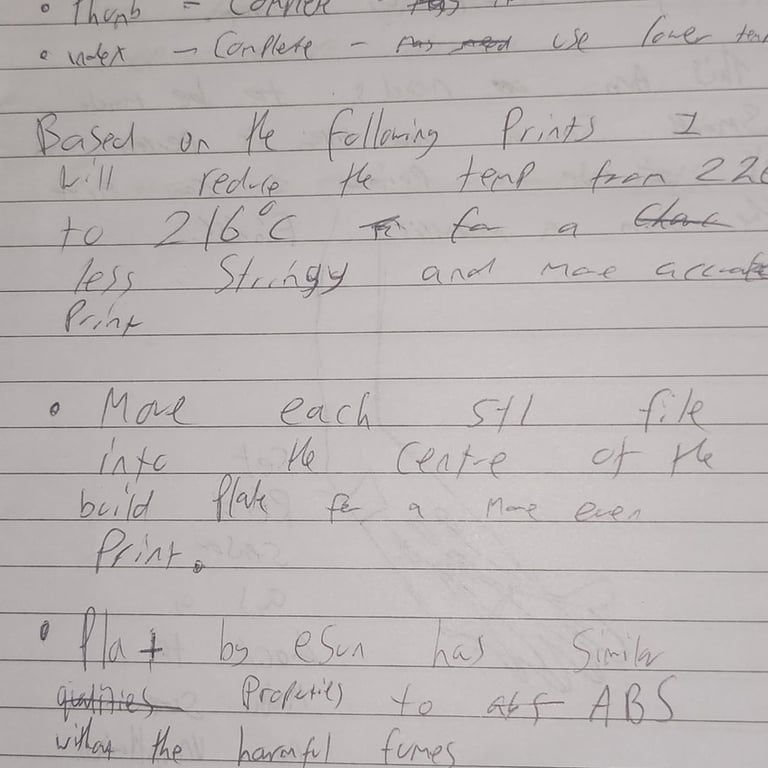 • Thumb - Complete
• index - Complete - has need use lower
Based on the following Prints I
will reduce the temp from 22
to 216°C for a
less Stringy and more accurate
Print
• Move each Stl file
into the Centre of the
build Plate for a more even
Print.
• Pla+ by eSun has Similar
qualities Properties to abs ABS
without the harmful fumes